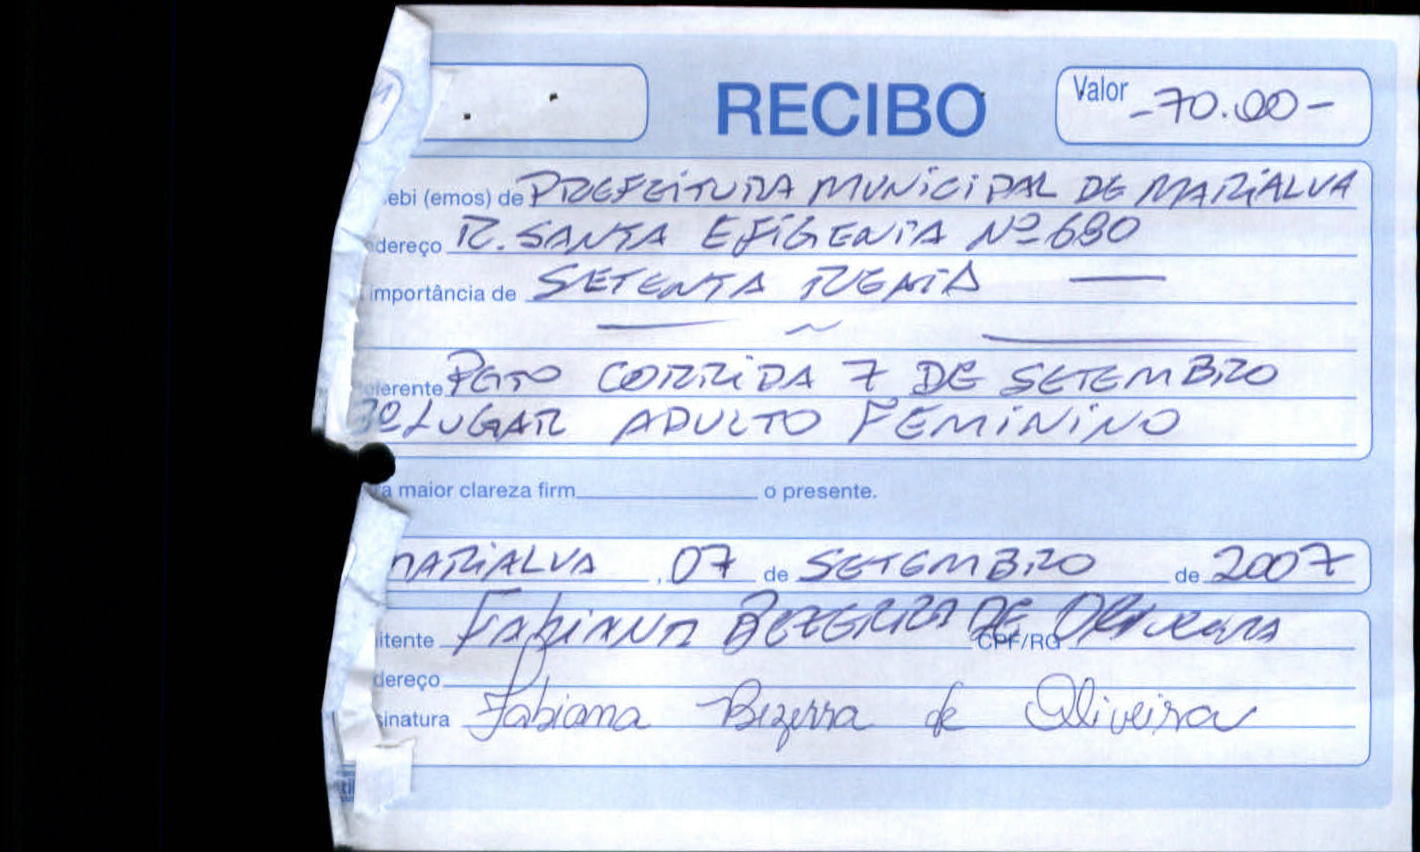 RECIBO
Valor -70.00-
ebi (emos) de PREFEITURA MUNICIPAL DE MARIALVA
dereço R. SANTA EFIGENIA Nº 680
importância de SETENTA REAIS
ferente PGTO CORRIDA 7 DE SETEMBRO
LUGAR ADULTO FEMININO
a maior clareza firm o presente.
MARIALVA , 07 de SETEMBRO de 2007
itente FABIANA BEZERRA DE OLIVEIRA CPF/RG
dereço
sinatura Fabiana Bezerra de Oliveira